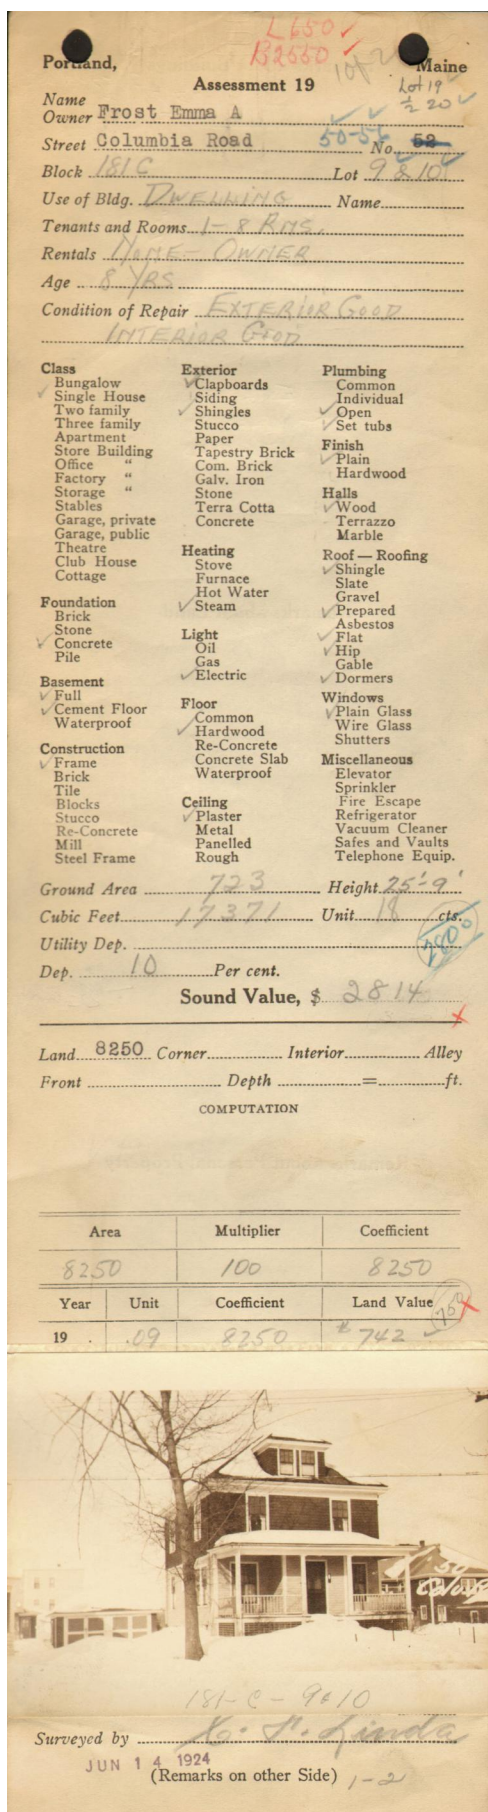 L650
B2550
Portland, Maine
1 of 2
Assessment 19
Lot 19
½ 20
Name
Owner Frost Emma A
Street Columbia Road 50-56 No. 52
Block 181C Lot 9 & 10
Use of Bldg. DWELLING Name
Tenants and Rooms 1-8 RMS.
Rentals NONE- OWNER
Age 8 YRS
Condition of Repair EXTERIOR GOOD
INTERIOR GOOD
Class
Bungalow
Single House
Two family
Three family
Apartment
Store Building
Office "
Factory "
Storage "
Stables
Garage, private
Garage, public
Theatre
Club House
Cottage
Foundation
Brick
Stone
Concrete
Pile
Basement
Full
Cement Floor
Waterproof
Construction
Frame
Brick
Tile
Blocks
Stucco
Re-Concrete
Mill
Steel Frame
Exterior
Clapboards
Siding
Shingles
Stucco
Paper
Tapestry Brick
Com. Brick
Galv. Iron
Stone
Terra Cotta
Concrete
Heating
Stove
Furnace
Hot Water
Steam
Light
Oil
Gas
Electric
Floor
Common
Hardwood
Re-Concrete
Concrete Slab
Waterproof
Ceiling
Plaster
Metal
Panelled
Rough
Plumbing
Common
Individual
Open
Set tubs
Finish
Plain
Hardwood
Halls
Wood
Terrazzo
Marble
Roof — Roofing
Shingle
Slate
Gravel
Prepared
Asbestos
Flat
Hip
Gable
Dormers
Windows
Plain Glass
Wire Glass
Shutters
Miscellaneous
Elevator
Sprinkler
Fire Escape
Refrigerator
Vacuum Cleaner
Safes and Vaults
Telephone Equip.
Ground Area 723 Height 25'-9'
Cubic Feet 17371 Unit 18 cts.
2800
Utility Dep.
Dep. 10 Per cent.
Sound Value, $ 2814
Land 8250 Corner Interior Alley
Front Depth = ft.
COMPUTATION
Area Multiplier Coefficient
8250 100 8250
Year Unit Coefficient Land Value 750
19 . .09 8250 $742
50
181-C-9&10
Surveyed by
JUN 14 1924
(Remarks on other Side) 1-2